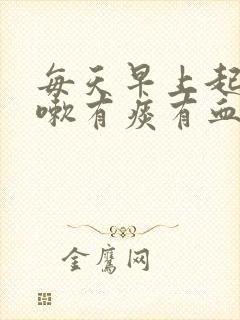 每天早上起
嗽有痰有血
金鹰网